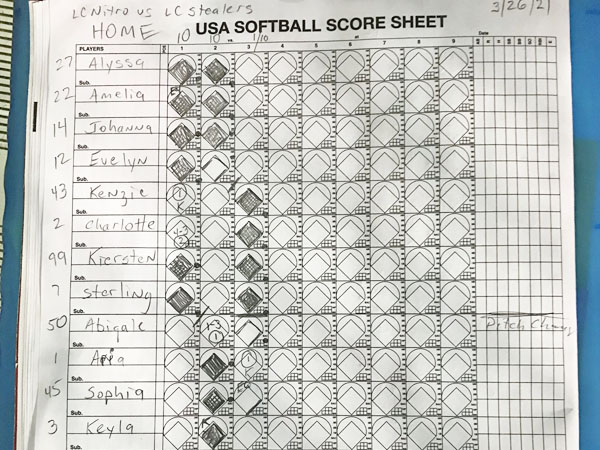 LC Nitro vs LC Stealers
3/26/21
HOME
USA SOFTBALL SCORE SHEET
10 10 vs. 1/10 at Date
PLAYERS 1 2 3 4 5 6 7 8 9
27 Alyssa
Sub.
22 Amelia
Sub.
14 Johanna
Sub.
12 Evelyn
Sub.
43 Kenzie 1 K
Sub.
2 Charlotte 4-3 2
Sub.
99 Kiersten
Sub.
7 Sterling
Sub.
50 Abigale 1-3 1
Sub.
1 Aria 1
Sub.
45 Sophia
Sub.
3 Keyla
Sub.